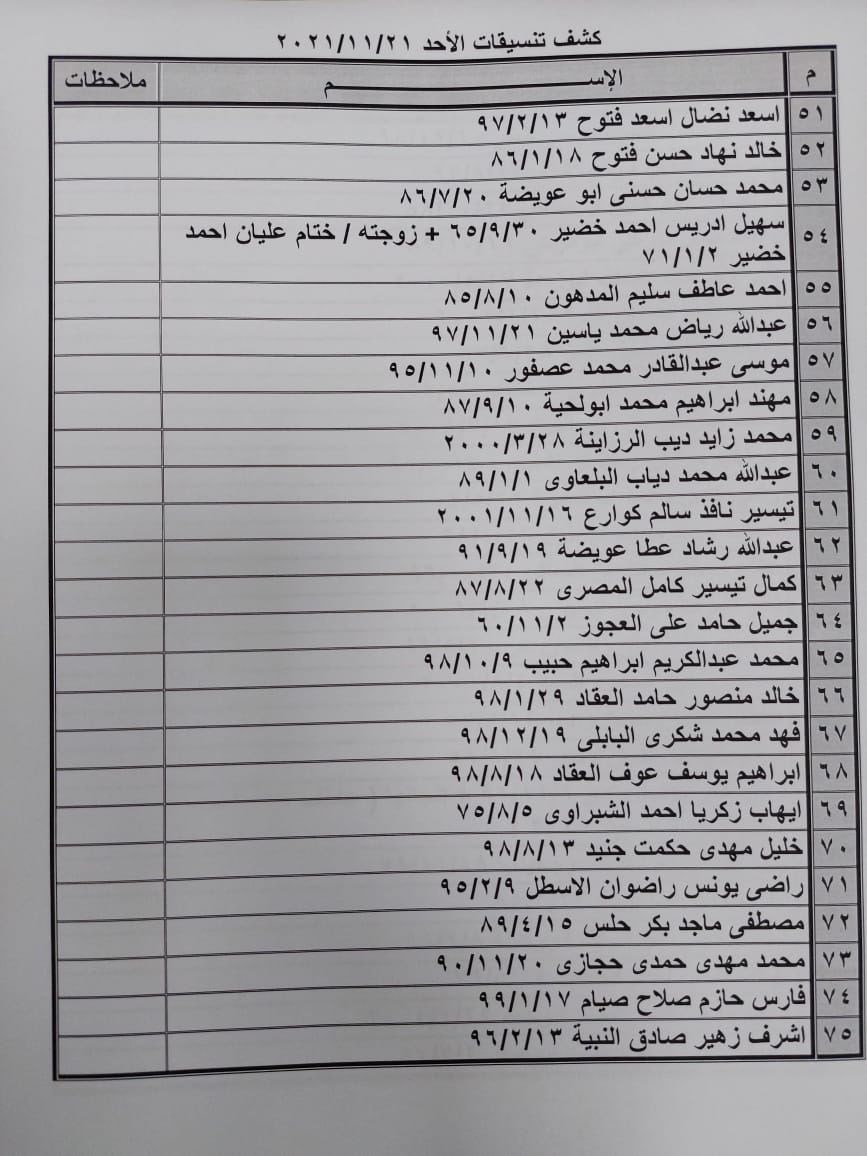 كشف تنسيقات الأحد ٢٠٢١/١١/٢١
م الإســـــــــم ملاحظات
٥١ اسعد نضال اسعد فتوح ٩٧/٢/١٣
٥٢ خالد نهاد حسن فتوح ٨٦/١/١٨
٥٣ محمد حسان حسنى ابو عويضة ٨٦/٧/٢٠
٥٤ سهيل ادريس احمد خضير ٦٥/٩/٣٠ + زوجته / ختام عليان احمد
خضير ٧١/١/٢
٥٥ احمد عاطف سليم المدهون ٨٥/٨/١٠
٥٦ عبدالله رياض محمد ياسين ٩٧/١١/٢١
٥٧ موسى عبدالقادر محمد عصفور ٩٥/١١/١٠
٥٨ مهند ابراهيم محمد ابولحية ٨٧/٩/١٠
٥٩ محمد زايد ديب الرزاينة ٢٠٠٠/٣/٢٨
٦٠ عبدالله محمد دياب البلعاوى ٨٩/١/١
٦١ تيسير نافذ سالم كوارع ٢٠٠١/١١/١٦
٦٢ عبدالله رشاد عطا عويضة ٩١/٩/١٩
٦٣ كمال تيسير كامل المصرى ٨٧/٨/٢٢
٦٤ جميل حامد على العجوز ٦٠/١١/٢
٦٥ محمد عبدالكريم ابراهيم حبيب ٩٨/١٠/٩
٦٦ خالد منصور حامد العقاد ٩٨/١/٢٩
٦٧ فهد محمد شكرى البابلى ٩٨/١٢/١٩
٦٨ ابراهيم يوسف عوف العقاد ٩٨/٨/١٨
٦٩ ايهاب زكريا احمد الشبراوى ٧٥/٨/٥
٧٠ خليل مهدى حكمت جنيد ٩٨/٨/١٣
٧١ راضى يونس راضوان الاسطل ٩٥/٢/٩
٧٢ مصطفى ماجد بكر حلس ٨٩/٤/١٥
٧٣ محمد مهدى حمدى حجازى ٩٠/١١/٢٠
٧٤ فارس حازم صلاح صيام ٩٩/١/١٧
٧٥ اشرف زهير صادق النبية ٩٦/٢/١٣